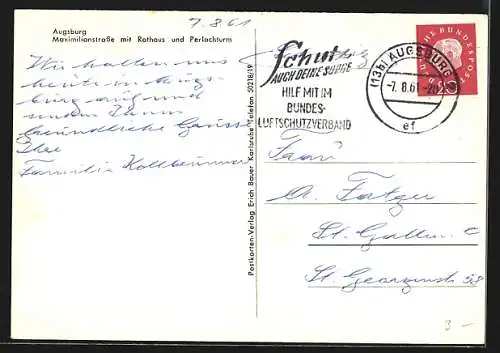 7.8.61
Augsburg
Maximilianstraße mit Rathaus und Perlachturm
Wir halten uns
heute in Augs-
burg auf und
senden Ihnen
freundliche Grüsse
Ihre
Familie
Postkarten-Verlag Erich Bauer Karlsruhe Telefon 50218/19
Schutz
AUCH DEINE SORGE
HILF MIT IM
BUNDES-
LUFTSCHUTZVERBAND
(13b) AUGSBURG 2
-7.8.61-20
ef
DEUTSCHE BUNDESPOST
Frau
A. Fatzer
St. Gallen C
St. Georgenstr. 58
3 -